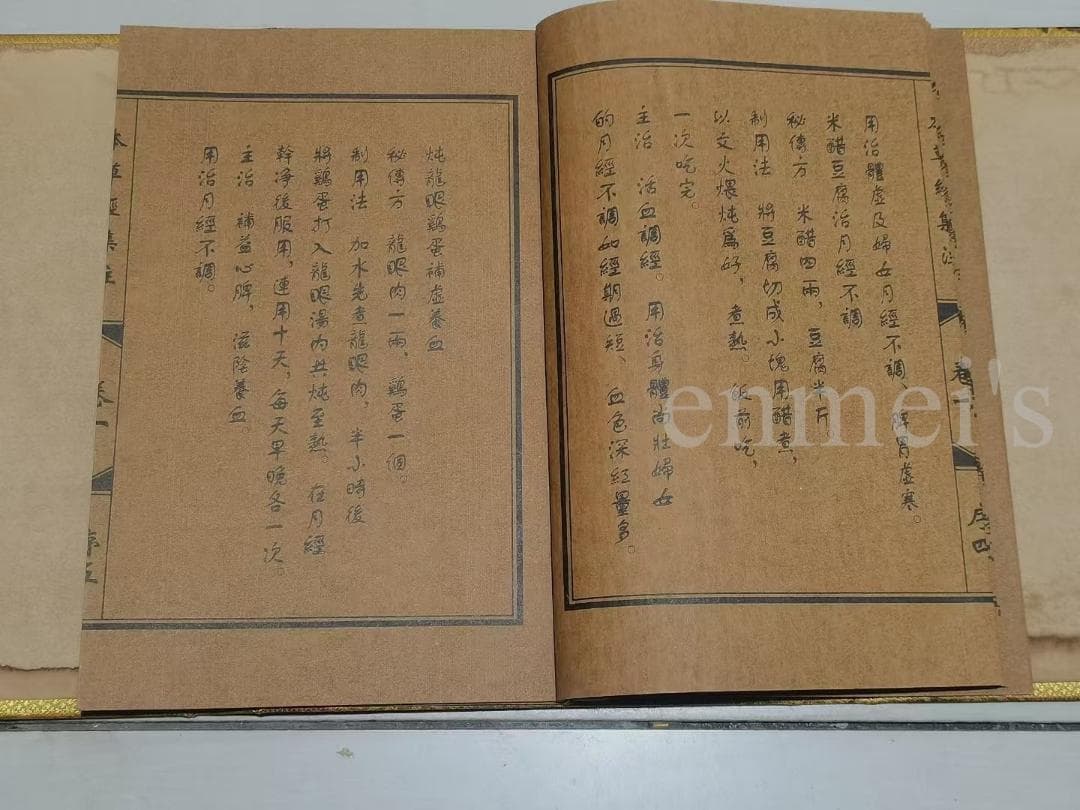 用治體虛及婦女月經不調、脾胃虛寒。
米醋豆腐治月經不調
秘傳方 米醋四兩，豆腐半斤。
制用法 將豆腐切成小塊用醋煮，
以文火煨炖為好，煮熱。飯前吃，
一次吃完。
主治 活血調經。用治身體尚壯婦女
的月經不調如經期過短、血色深紅量多。
炖龍眼鷄蛋補虛養血
秘傳方 龍眼肉一兩，鷄蛋一個。
制用法 加水先煮龍眼肉，半小時後
將鷄蛋打入龍眼湯内共炖至熟。在月經
幹净後服用，連用十天，每天早晚各一次。
主治 補益心脾，滋陰養血。
用治月經不調。
本草經集注
卷一
序五
序四
enmei's